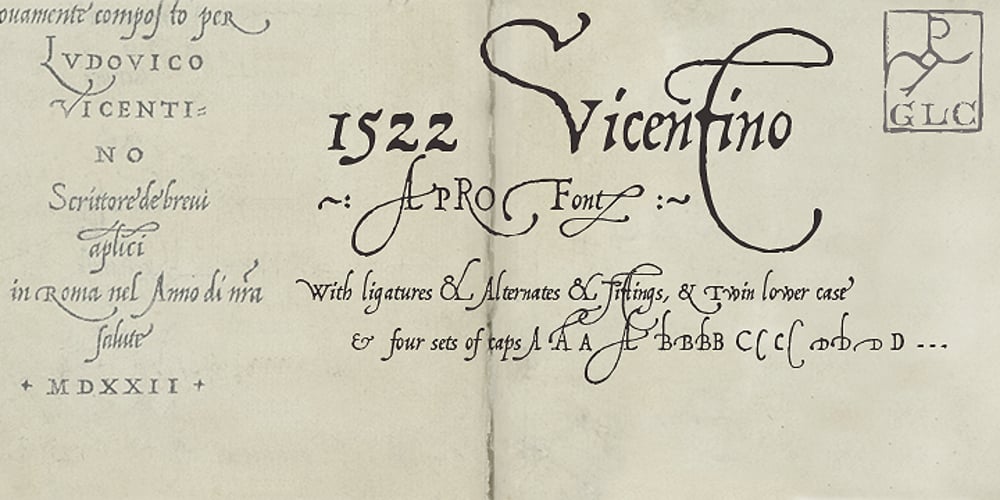 ouamente compoſto per
LVDOVICO
VICENTI=
NO
Scrittore de breui
aplici
in Roma nel Anno di nr̃a
ſalute
+ MDXXII +
1522 Vicentino
~: A PRO Font :~
With ligatures & Alternates & Fittings, & Twin lower case
& four sets of caps A A A A B B B B C C C D D D D ...
P
GLC